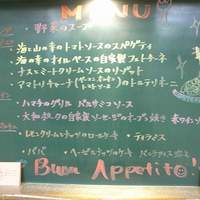 MENU
・野菜のスープ
・海と山の幸のトマトソースのスパゲティ
・海の幸のオイルベースの自家製フェトチーネ
・ナスとミートクリームソースのリゾット
・アマトリチャーナ のトルテリオーニ
・ハマチのグリル バルサミコソース
・大和ポークの自家製ソーセージのオーブン焼き 赤ワイン
・レモンクリームナッツのロールケーキ ・ティラミス
・ババ ・ヘーゼルナッツのケーキ
Buon Appetito!